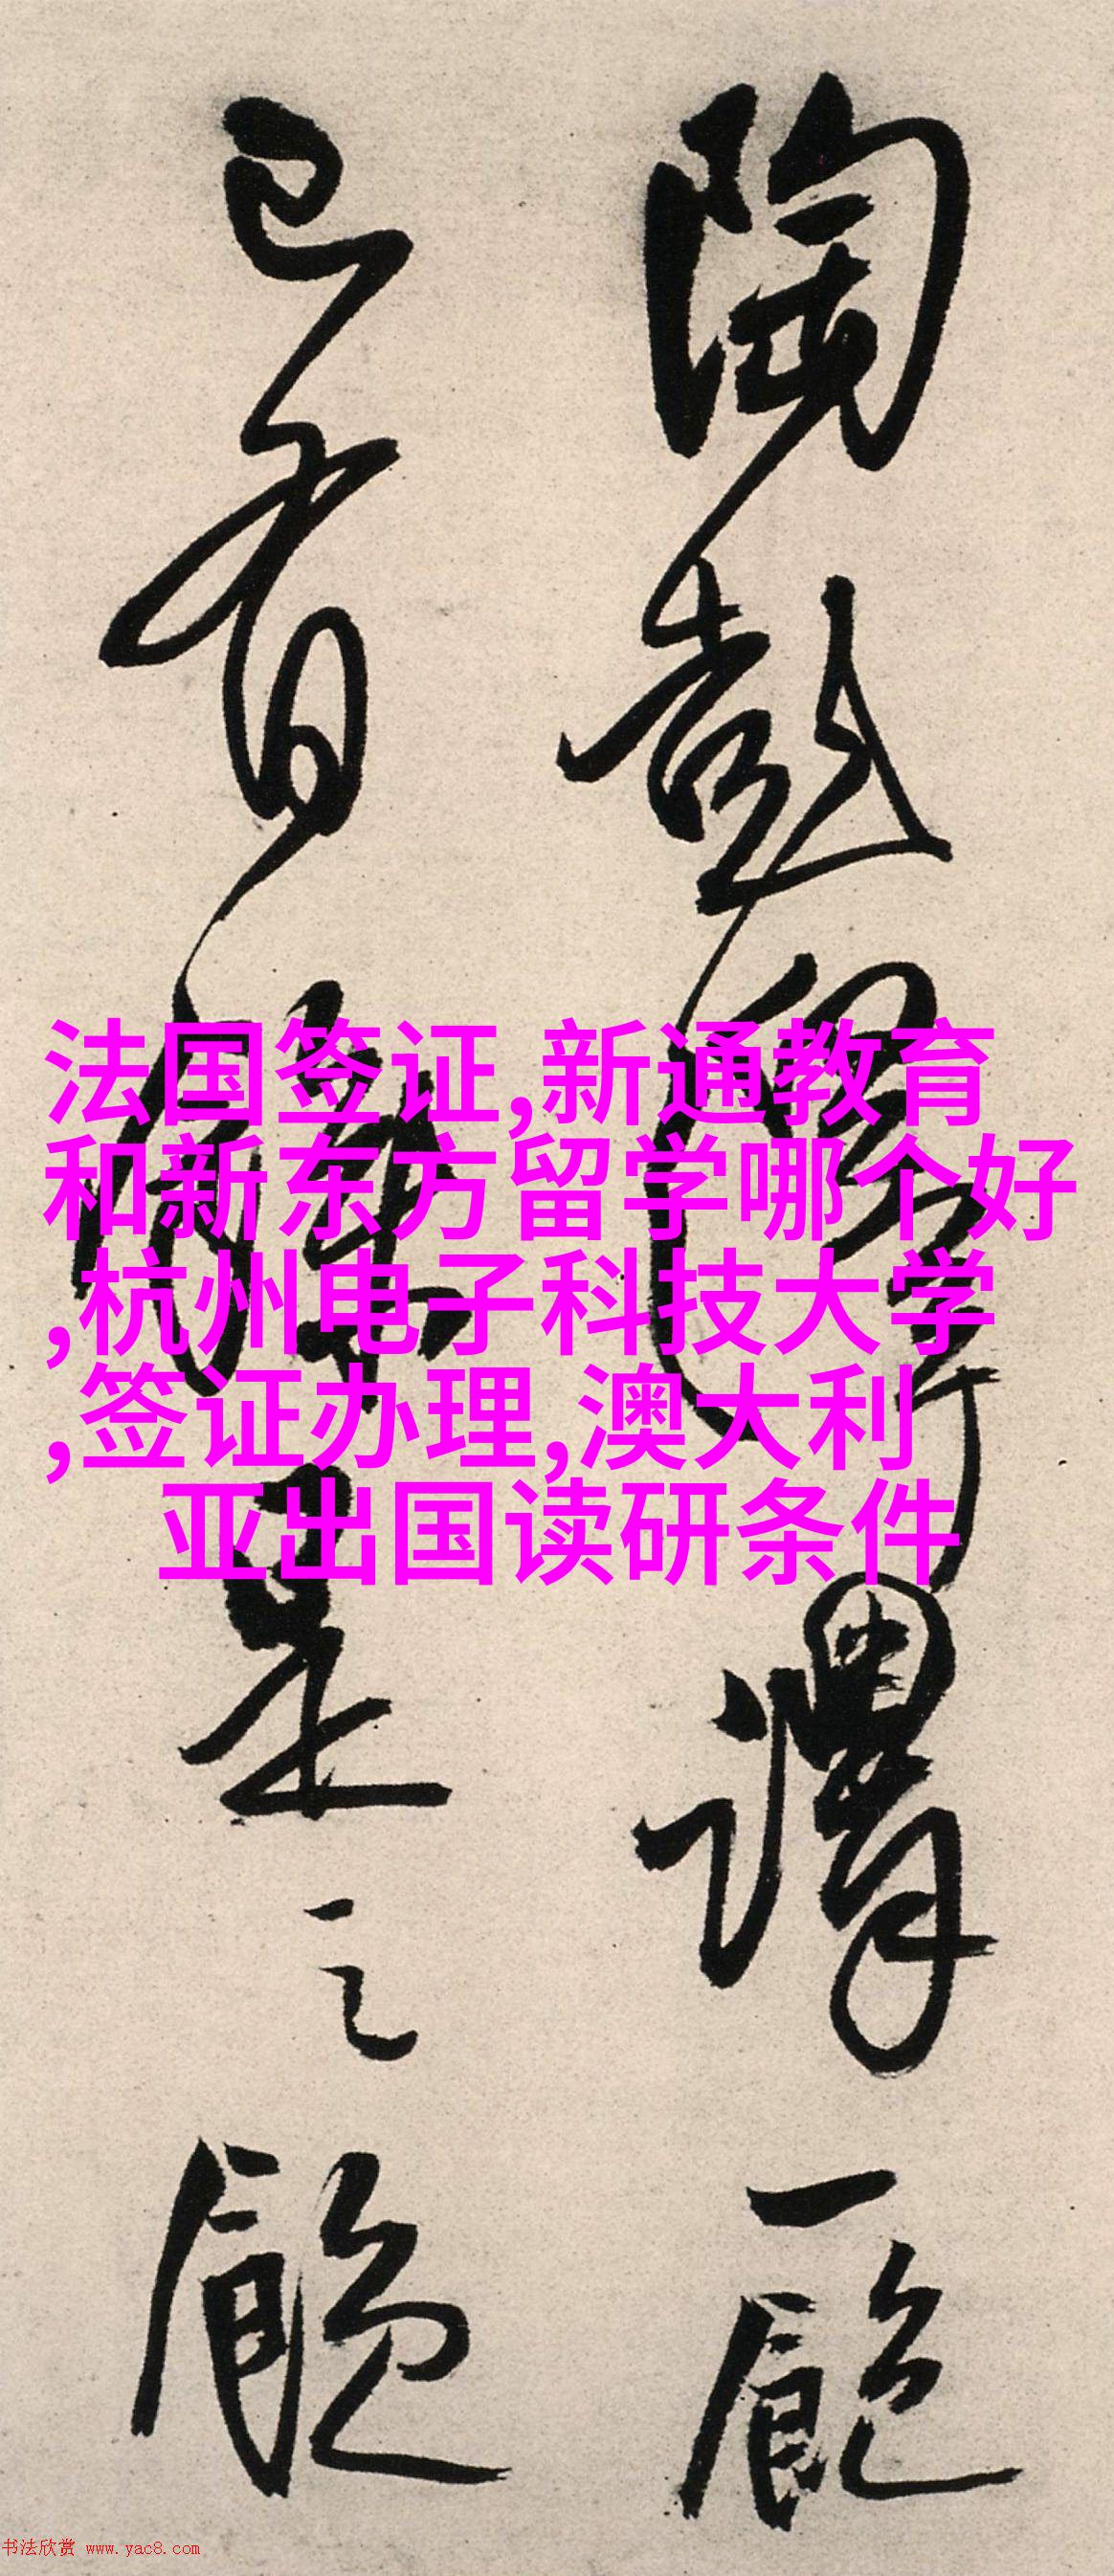 陶彭澤謂一
已有是之
法国签证,新通教育
和新东方留学哪个好
,杭州电子科技大学
,签证办理,澳大利
亚出国读研条件
书法欣赏 www.yac8.com